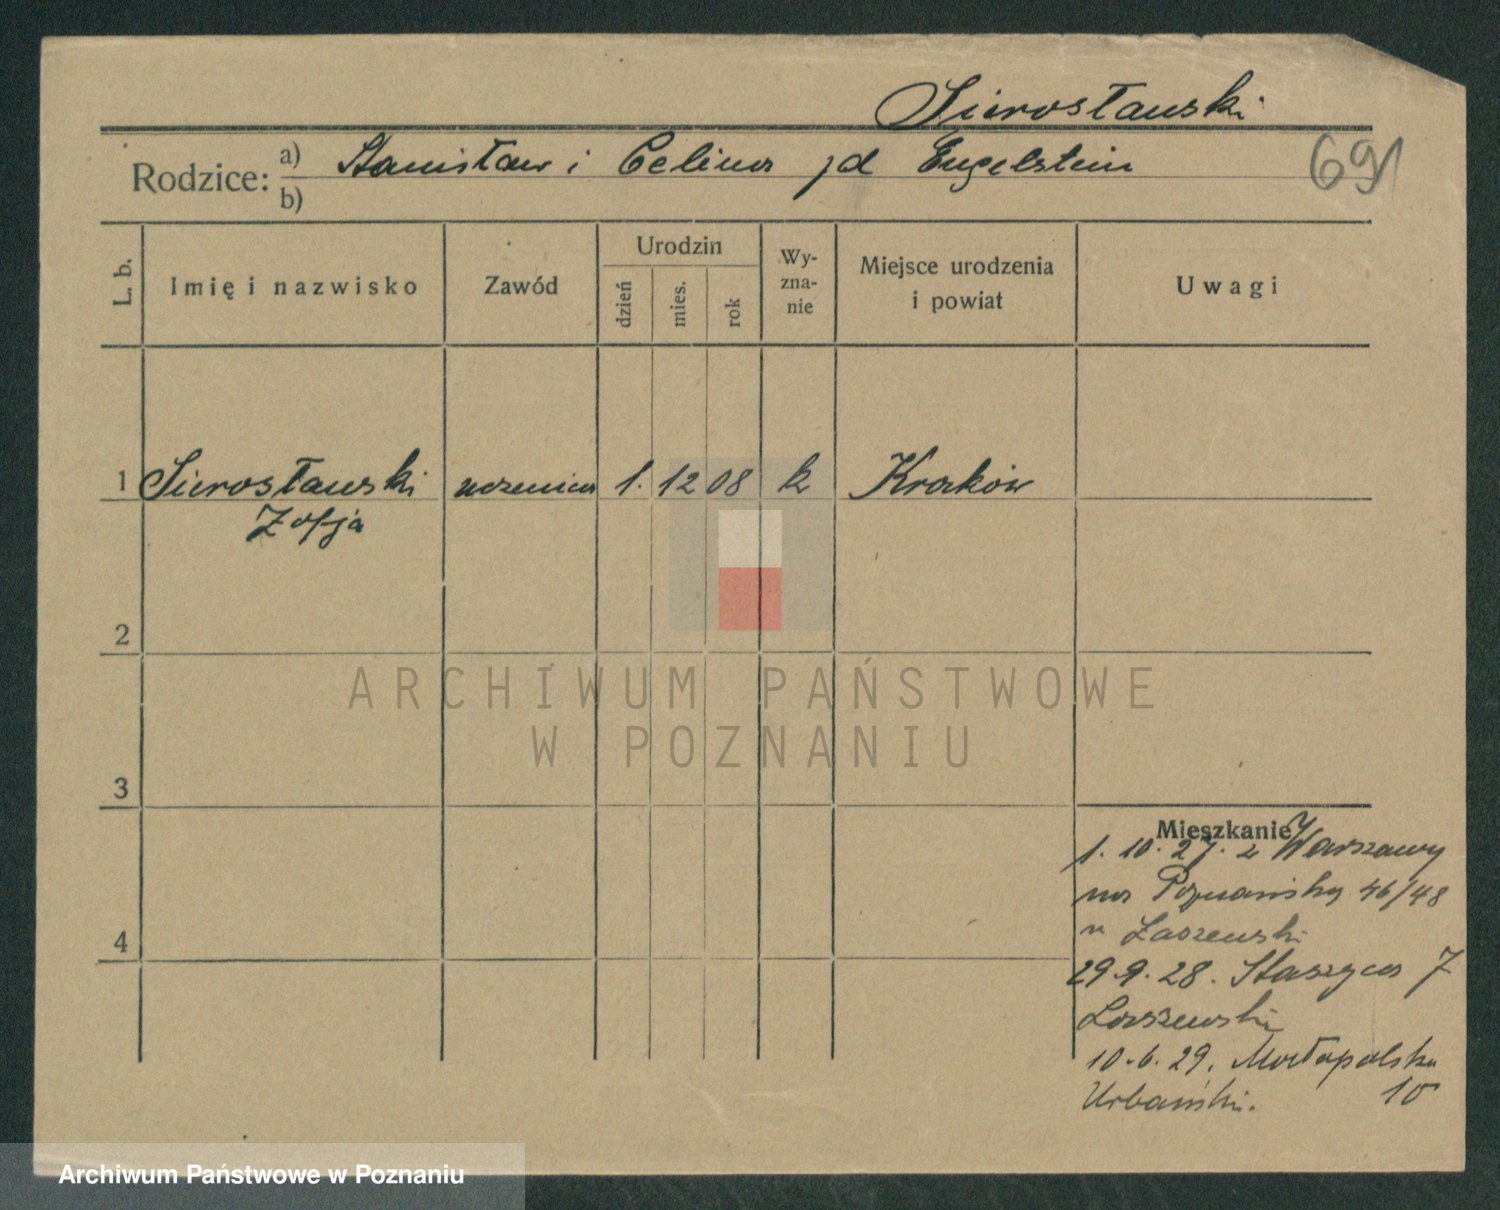 Sierosławski
Rodzice: a) Stanisław i Celina zd Engelstein 691
b)
L. b. Imię i nazwisko Zawód Urodzin dzień mies. rok Wy-zna-nie Miejsce urodzenia i powiat Uwagi
1 Sierosławski uczenica 1. 12 08 k Kraków
Zofja
2
ARCHIWUM PAŃSTWOWE
W POZNANIU
3
Mieszkanie
1. 10. 27. z Warszawy
na Poznańską 46/48
u Łaszewski
29.9.28. Staszyca 7
Laszewski
10.6.29. Małopolska
Urbański. 10
4
Archiwum Państwowe w Poznaniu